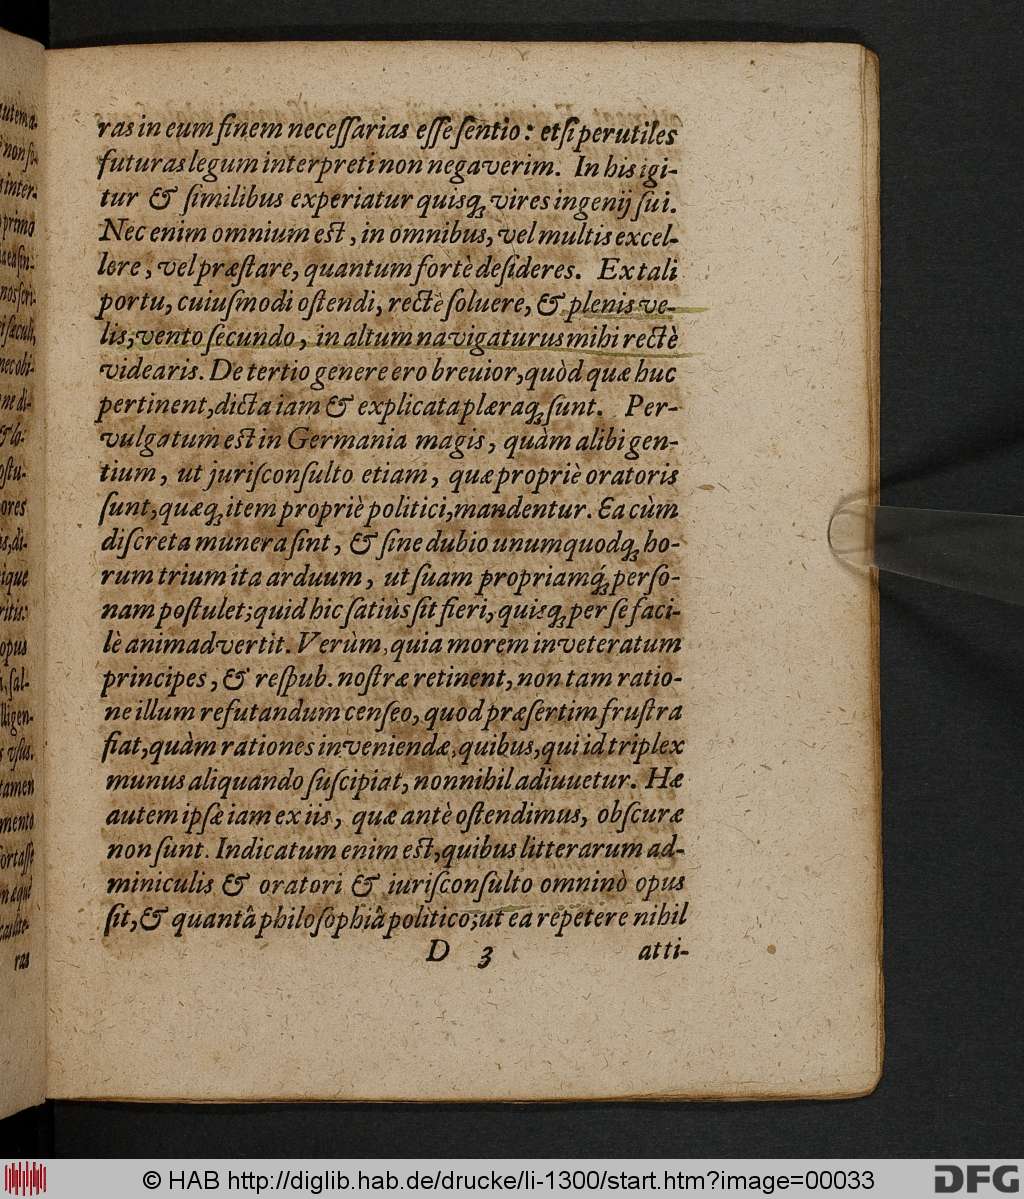 ras in eum finem neceſſarias eſſe ſentio: etſi perutiles
futuras legum interpreti non negaverim. In his igi-
tur & ſimilibus experiatur quisq; vires ingenij ſui.
Nec enim omnium eſt, in omnibus, vel multis excel-
lere, vel præſtare, quantum fortè deſideres. Ex tali
portu, cuiuſmodi oſtendi, rectè ſoluere, & plenis ve-
lis, vento ſecundo, in altum navigaturus mihi rectè
videaris. De tertio genere ero breuior, quòd quæ huc
pertinent, dicta iam & explicata plæraq; ſunt. Per-
vulgatum eſt in Germania magis, quàm alibi gen-
tium, ut juriſconſulto etiam, quæ propriè oratoris
ſunt, quæq; item propriè politici, mandentur. Ea cùm
diſcreta munera ſint, & ſine dubio unumquodq; ho-
rum trium ita arduum, ut ſuam propriamq́; perſo-
nam poſtulet; quid hic ſatiùs ſit fieri, quisq; per ſe faci-
lè animadvertit. Verùm, quia morem inveteratum
principes, & reſpub. noſtræ retinent, non tam ratio-
ne illum refutandum cenſeo, quod præſertim fruſtra
fiat, quàm rationes inveniendæ, quibus, qui id triplex
munus aliquando ſuſcipiat, nonnihil adiuuetur. Hæ
autem ipſæ iam ex iis, quæ antè oſtendimus, obſcuræ
non ſunt. Indicatum enim eſt, quibus litterarum ad-
miniculis & oratori & iuriſconſulto omninò opus
ſit, & quantâ philoſophiâ politico; ut ea repetere nihil
D 3 atti-
© HAB http://diglib.hab.de/drucke/li-1300/start.htm?image=00033
DFG